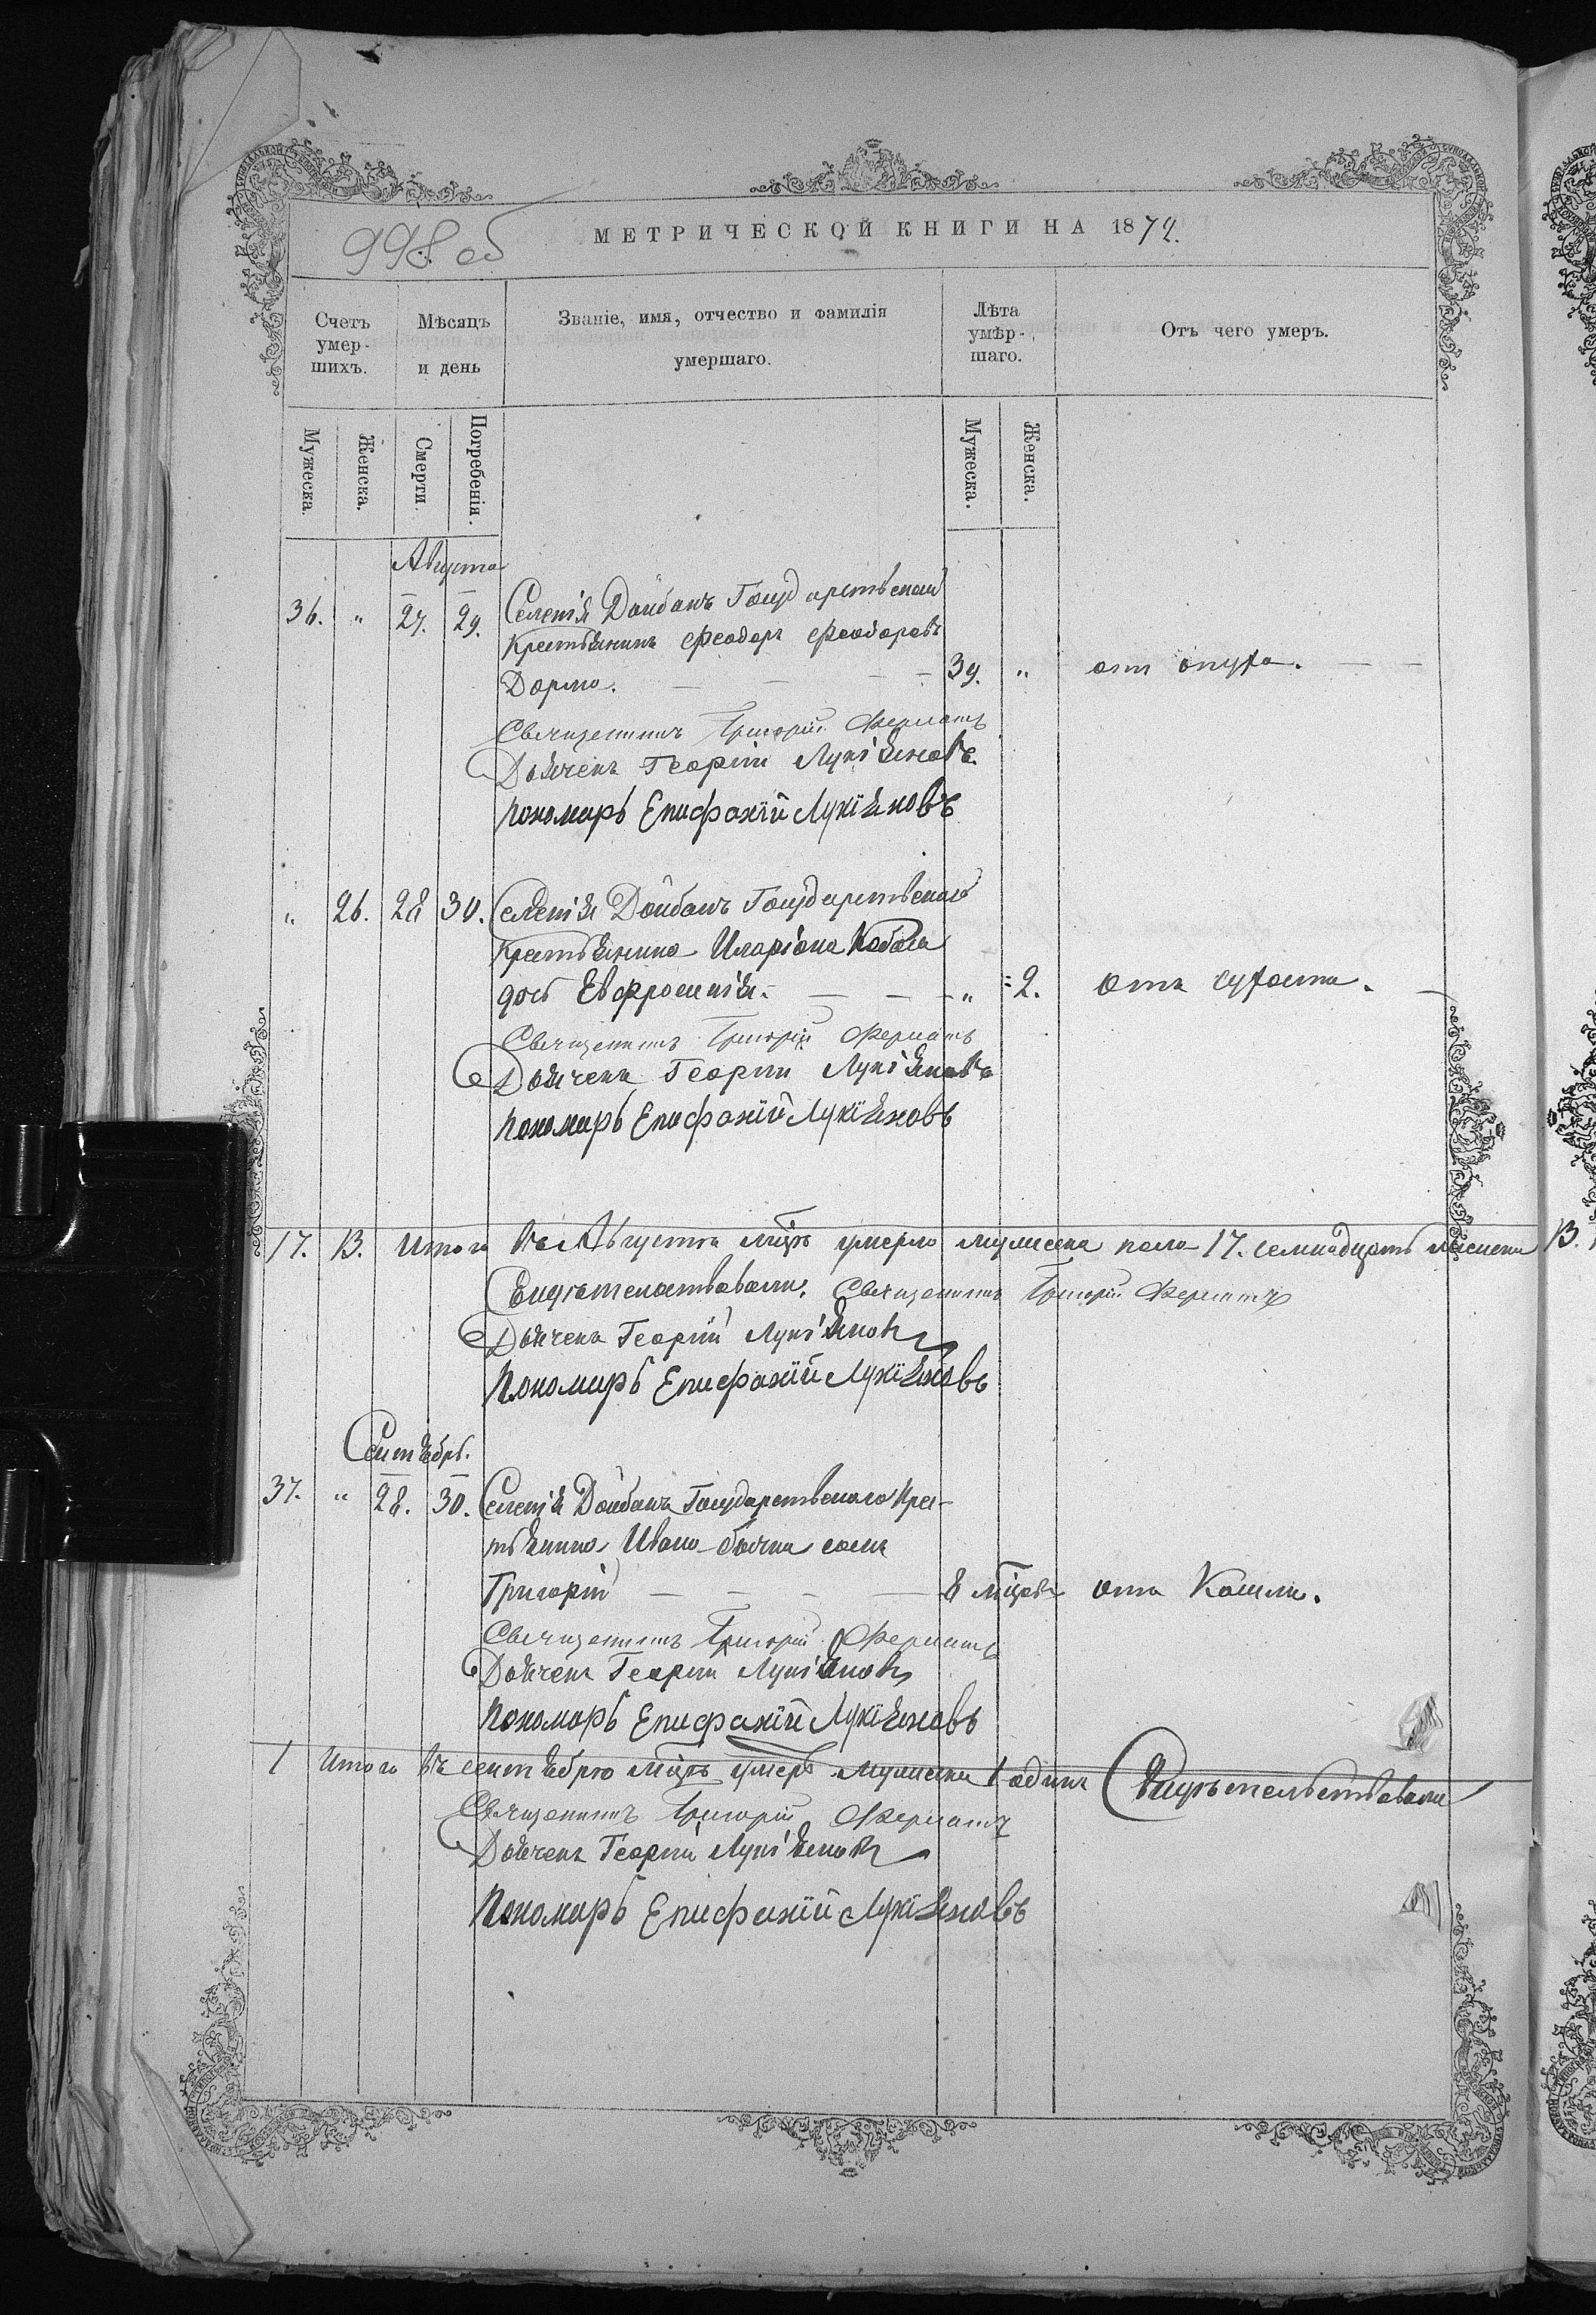 998 об
МЕТРИЧЕСКОЙ КНИГИ НА 1874.
Счетъ умер-шихъ.
Мѣсяцъ и день
Званіе, имя, отчество и фамилія умершаго.
Лѣта умѣр-шаго.
Отъ чего умеръ.
Мужеска. Женска. Смерти. Погребенія. Мужеска. Женска.
Августа
36. " 27. 29. Селенія Дойбанъ Государственый
Крестьянинъ Феодоръ Феодоровъ
39. " отъ
Священникъ Григорій
Дьячекъ Георгій Лукіяновъ
Пономарь Епифаній Лукіяновъ
" 26. 28 30. Селенія Дойбанъ Государственаго
Крестьянина Иларіона
дочь Евфросинія. " 2. Отъ
Священникъ Григорій
Дьячекъ Георгій Лукіяновъ
Пономарь Епифаній Лукіяновъ
17. 13. Итого въ Августѣ м͠цѣ умерло мужеска пола 17. семнадцать женска 13.
Свидѣтельствовали. Священникъ Григорій
Дьячекъ Георгій Лукіяновъ
Пономарь Епифаній Лукіяновъ
Сентябрь.
37. " 28. 30. Селенія Дойбанъ Государственаго Кре-
стьянина Ивана сынъ
Григорій 8 м͠цовъ Отъ Кашли.
Священникъ Григорій
Дьячекъ Георгій Лукіяновъ
Пономарь Епифаній Лукіяновъ
1 Итого въ сентябрѣ м͠цѣ умеръ мужеска 1 одинъ Свидѣтельствовали
Священникъ Григорій
Дьячекъ Георгій Лукіяновъ
Пономарь Епифаній Лукіяновъ